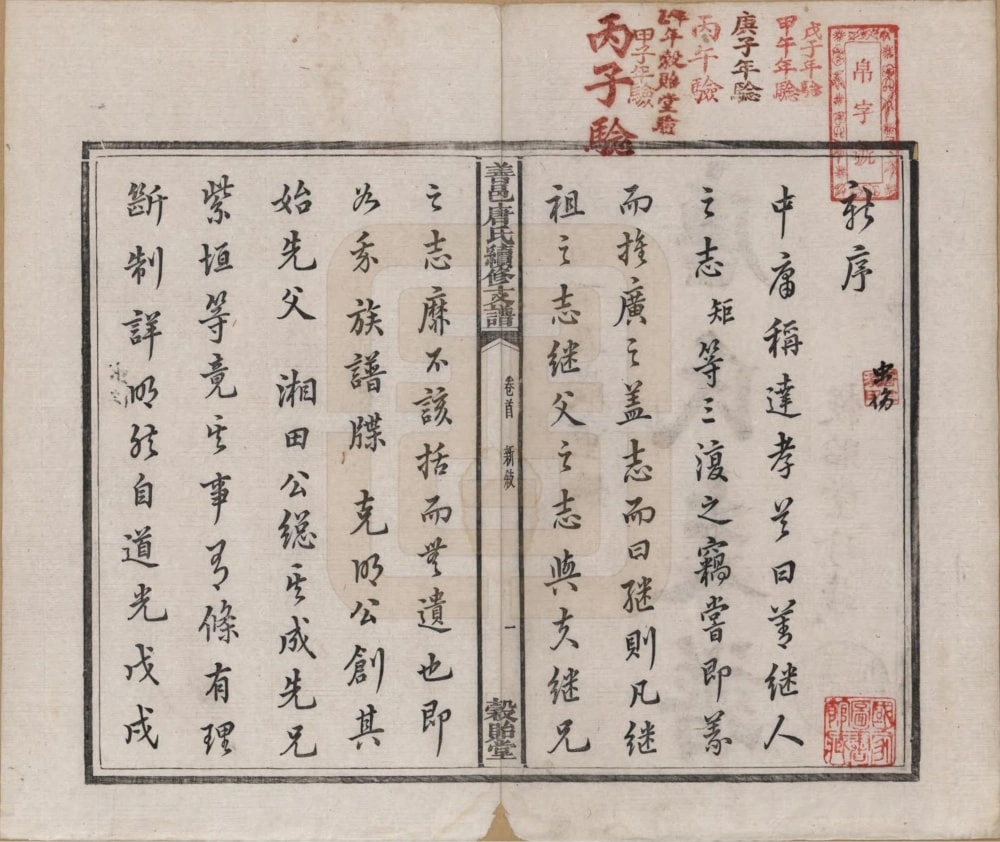 帛字號
戊子年驗
甲午年驗
庚子年驗
丙午驗
年穀貽堂驗
甲子年驗
丙子驗
新序
中庸稱達孝者曰善继人
之志矩等三復之竊嘗即義
而推廣之盖志而曰继則凡继
祖之志继父之志與夫继兄
善邑唐氏續修支譜
卷首 新敘
一
穀貽堂
之志靡不該括而無遺也即
如我族譜牒 克明公創其
始先父 湘田公総其成先兄
紫垣等竟其事有條有理
斷制詳明然自道光戊戌
國家圖書館藏